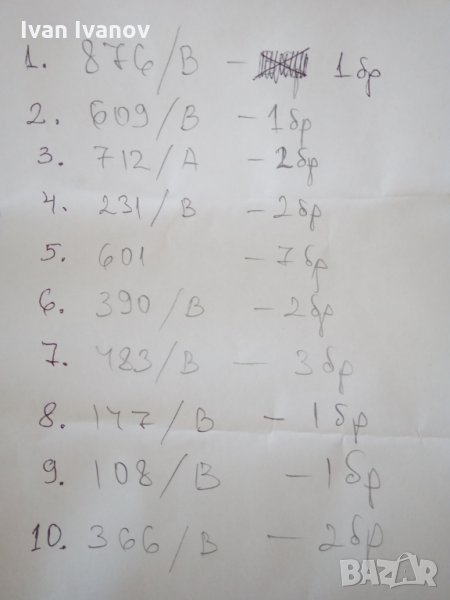 Ivan Ivanov
1. 876/B - 1 бр
2. 609/B - 1 бр
3. 712/A - 2 бр
4. 231/B - 2 бр
5. 601 - 7 бр
6. 390/B - 2 бр
7. 483/B - 3 бр
8. 147/B - 1 бр
9. 108/B - 1 бр
10. 366/B - 2 бр
BAZAR